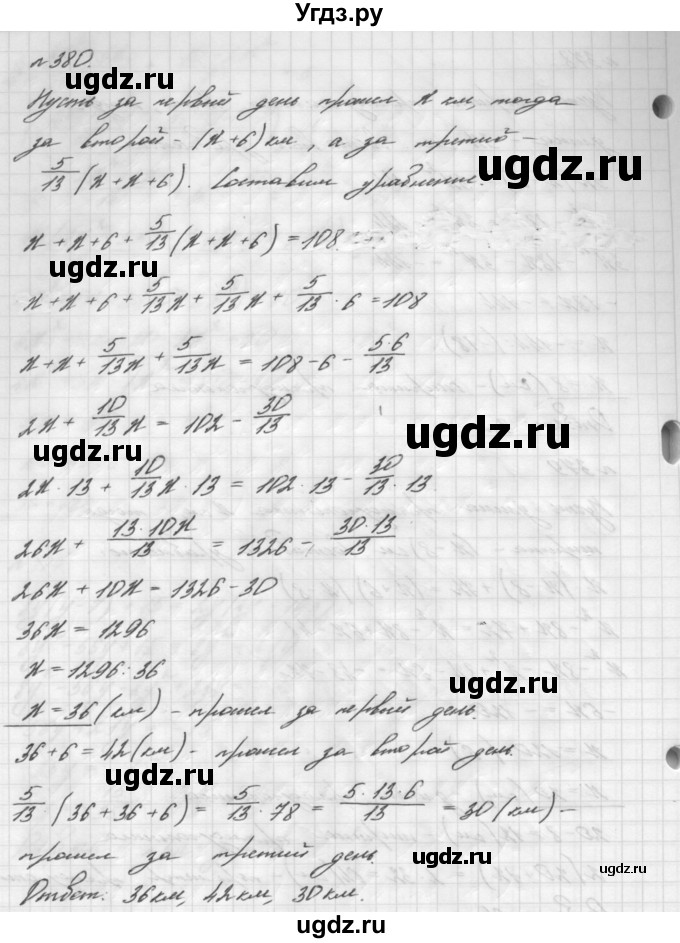 Угдз.ру
№380.
ugdz.ru
Пусть за первый день прошел x км, тогда
за второй - (x+6) км, а за третий -
5/13 (x+x+6). Составим уравнение.
ugdz.ru
x+x+6+ 5/13 (x+x+6) = 108
ugdz.ru
x+x+6+ 5/13 x + 5/13 x + 5/13 · 6 = 108
x+x+ 5/13 x + 5/13 x = 108-6- 5·6/13
2x + 10/13 x = 102 - 30/13
ugdz.ru
ugdz.ru
2x·13 + 10/13 x·13 = 102·13 - 30/13 ·13
26x + 13·10x/13 = 1326 - 30·13/13
26x + 10x = 1326-30
36x = 1296
x = 1296:36
ugdz.ru
x = 36 (км) - прошел за первый день.
ugdz.ru
36+6 = 42 (км) - прошел за второй день.
ugdz.ru
5/13 (36+36+6) = 5/13 · 78 = 5·13·6/13 = 30 (км) -
прошел за третий день.
ugdz.ru
ugdz.ru
Ответ: 36км, 42км, 30км.
ugdz.ru